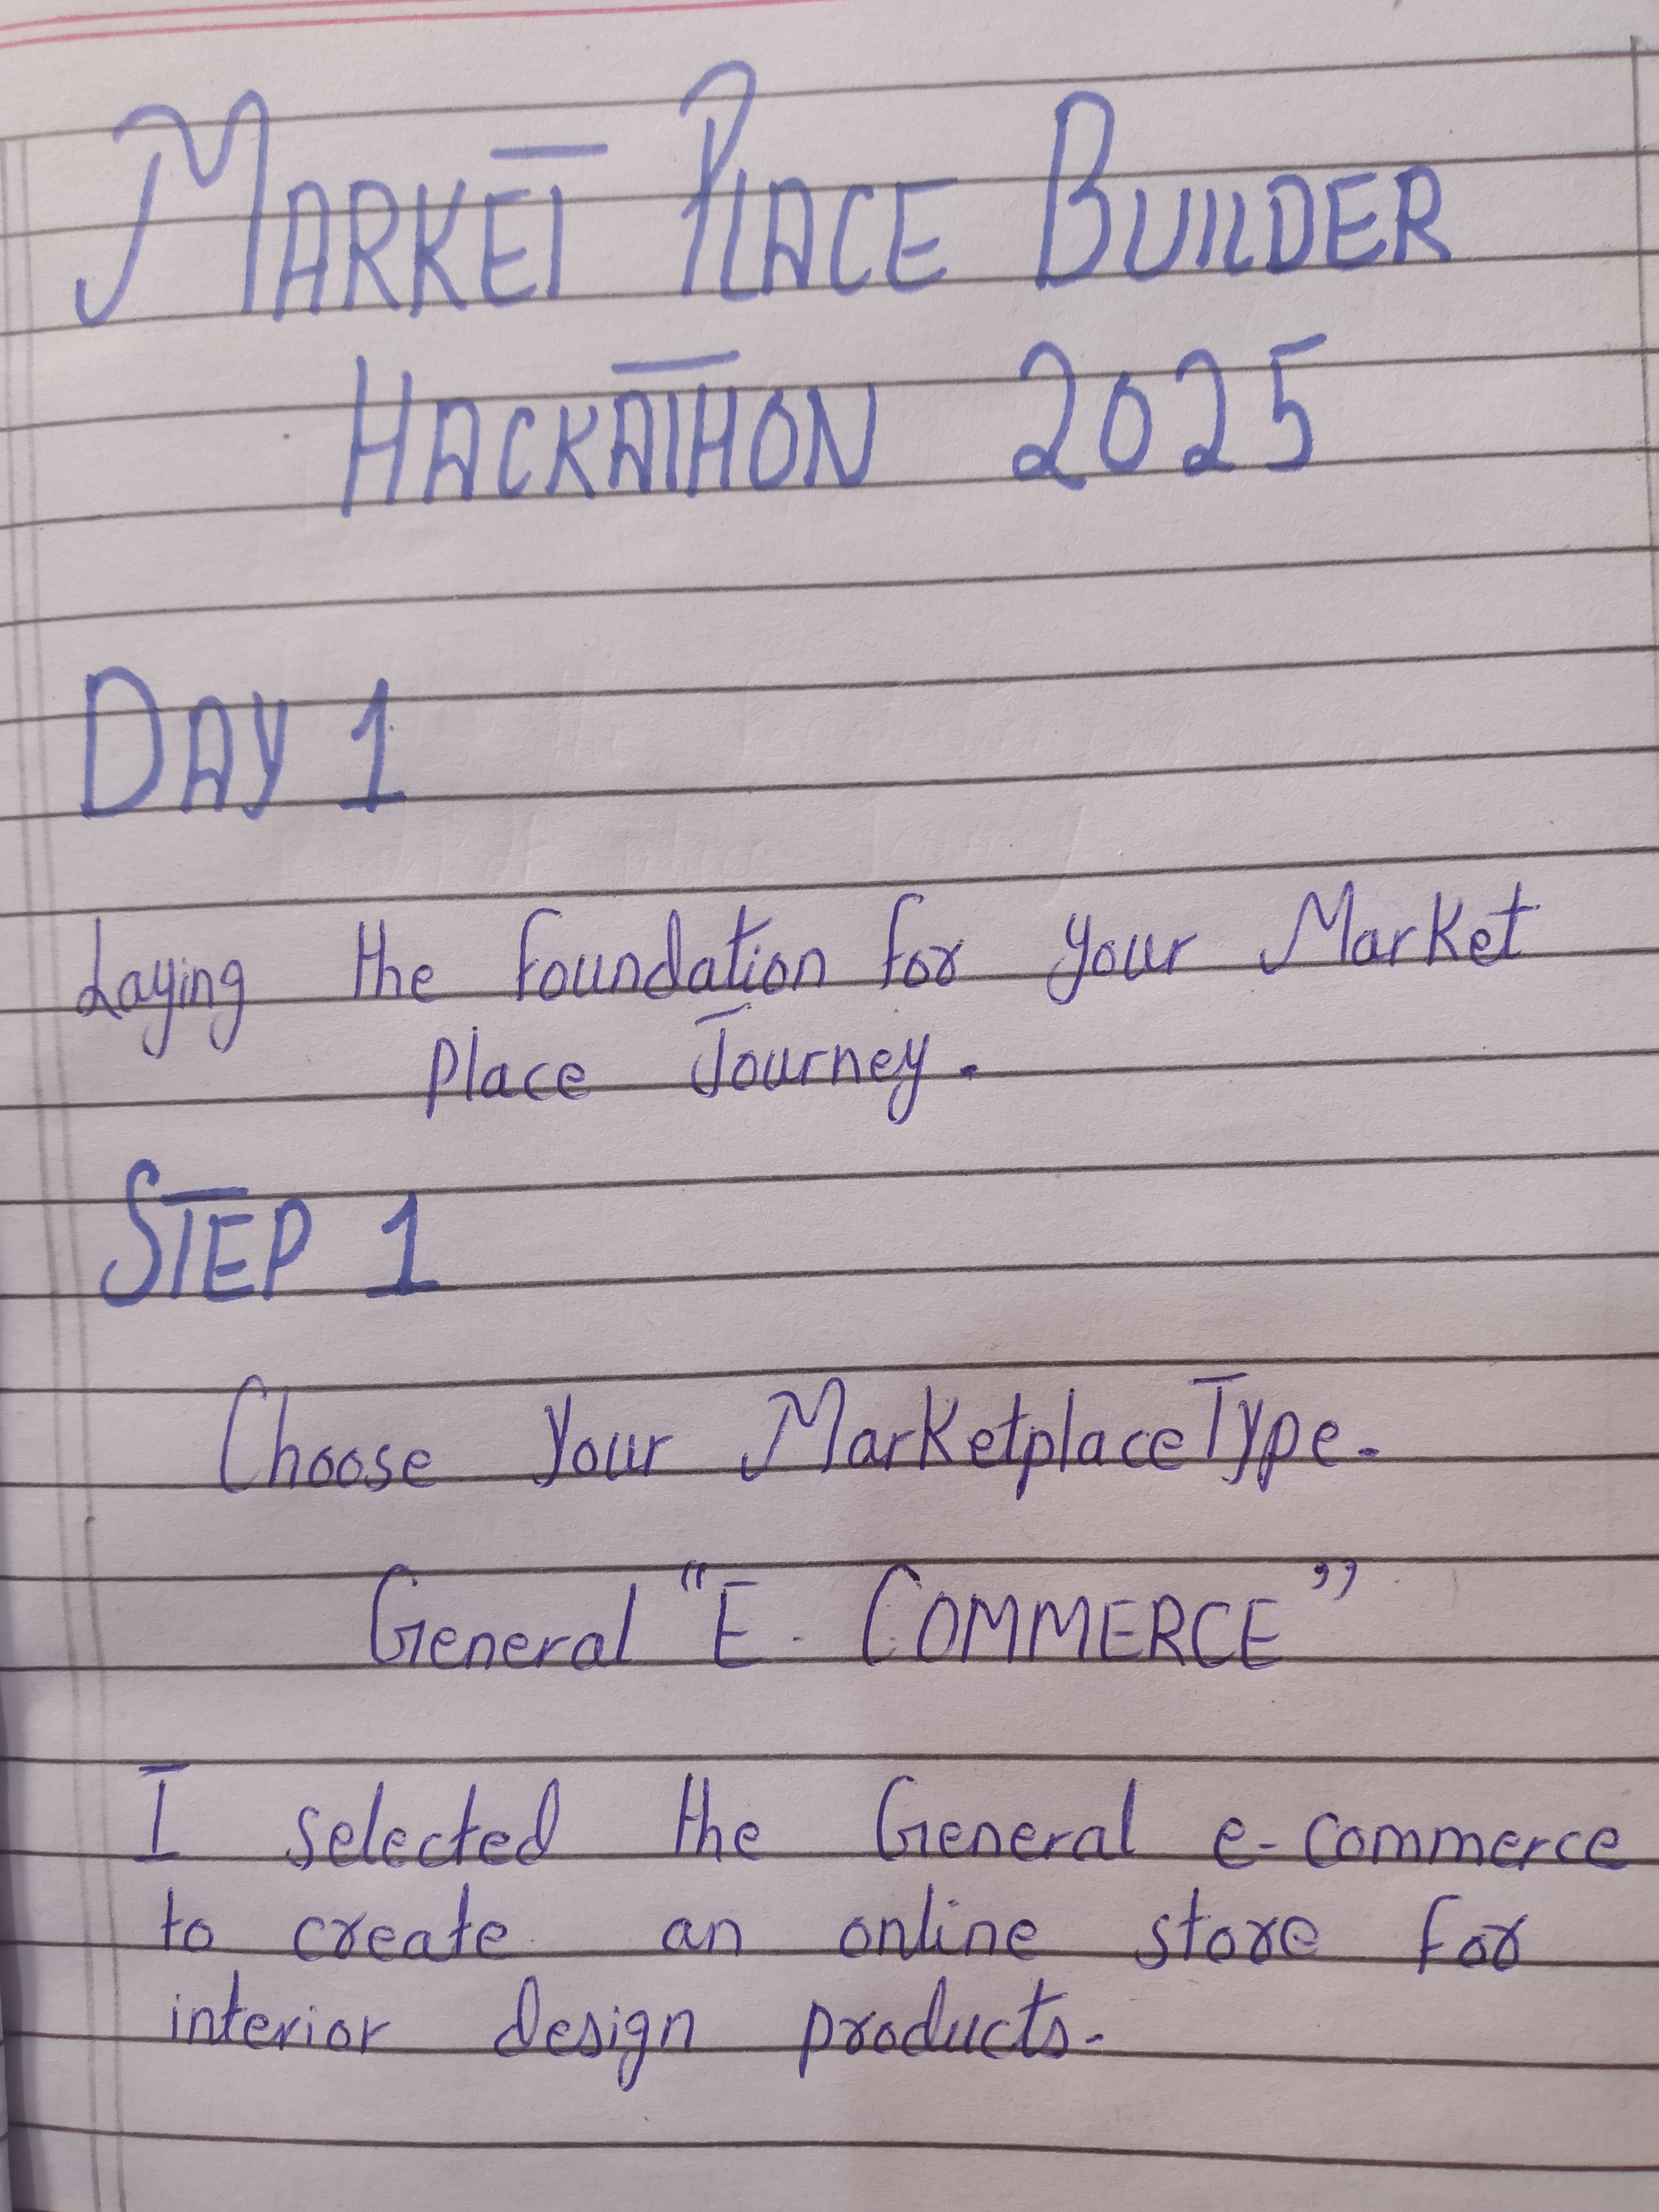 MARKET PLACE BUILDER
HACKATHON 2025
DAY 1
Laying the Foundation for your Market
place Journey.
STEP 1
Choose Your Marketplace Type.
General "E- COMMERCE"
I selected the General e-commerce
to create an online store for
interior design products.